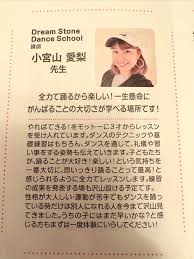 Dream Stone
Dance School
講師
小宮山 愛梨
先生
全力で踊るから楽しい!一生懸命に
がんばることの大切さが学べる場所です!
やればできる!をモットーに3才からレッスン
を受け入れています。ダンスのテクニックや基
礎練習はもちろん、ダンスを通じて、礼儀や習
い事をする姿勢も伝えていきます。子どもたち
が、踊ることが大好き!楽しい!という気持ちを
一番大切に、思いっきり踊ることって最高!と
感じられるように全力でレッスンします。練習
の成果を発表する場も沢山設けています。
性格が大人しい、運動が苦手でもダンスを踊っ
ている時だけは別人になれる人を今まで沢山見
てきました。うちの子にはまだ早いかな?と感じ
る方もまずは一度体験にいらしてください!